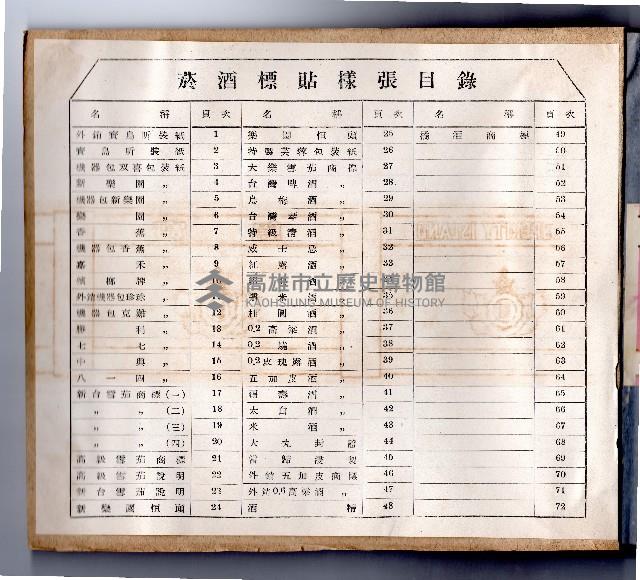 菸酒標貼樣張目錄
名稱 頁次 名稱 頁次 名稱 頁次
外銷寶島所裝紙 1 樂園恒頭 25 酒商標 49
寶島所裝紙 2 特製芙蓉包裝紙 26 50
機器包双喜包裝紙 3 大樂雪茄商標 27 51
新樂園 〃 4 台灣啤酒 〃 28 52
機器包新樂園 〃 5 烏梅酒 〃 29 53
樂園 〃 6 台灣 酒 〃 30 54
香蕉 〃 7 特級清酒 〃 31 55
機器包香蕉 〃 8 威士忌 〃 32 56
嘉禾 〃 9 紅露酒 33 57
檳榔牌 10
高雄市立歷史博物館
KAOHSIUNG MUSEUM OF HISTORY
外銷機器包珍珠 〃 11 米酒 35 59
機器包克難 〃 12 桂圓酒 〃 36 60
勝利 〃 13 0.2高粱酒 〃 37 61
七七 〃 14 0.2 酒 〃 38 62
中興 〃 15 0.2玫瑰露酒 〃 39 63
八一四 〃 16 五加皮酒 〃 40 64
新台雪茄商標(一) 17 酒 〃 41 65
〃 〃 (二) 18 太白酒 〃 42 66
〃 〃 (三) 19 米酒 〃 43 67
〃 〃 (四) 20 大 封 44 68
高級雪茄商標 21 當歸 45 69
高級雪茄說明 22 外銷五加皮商標 46 70
新台雪茄說明 23 外銷0.6高粱酒 〃 47 71
新樂園恒頭 24 酒精 48 72
PERITY ISLAND